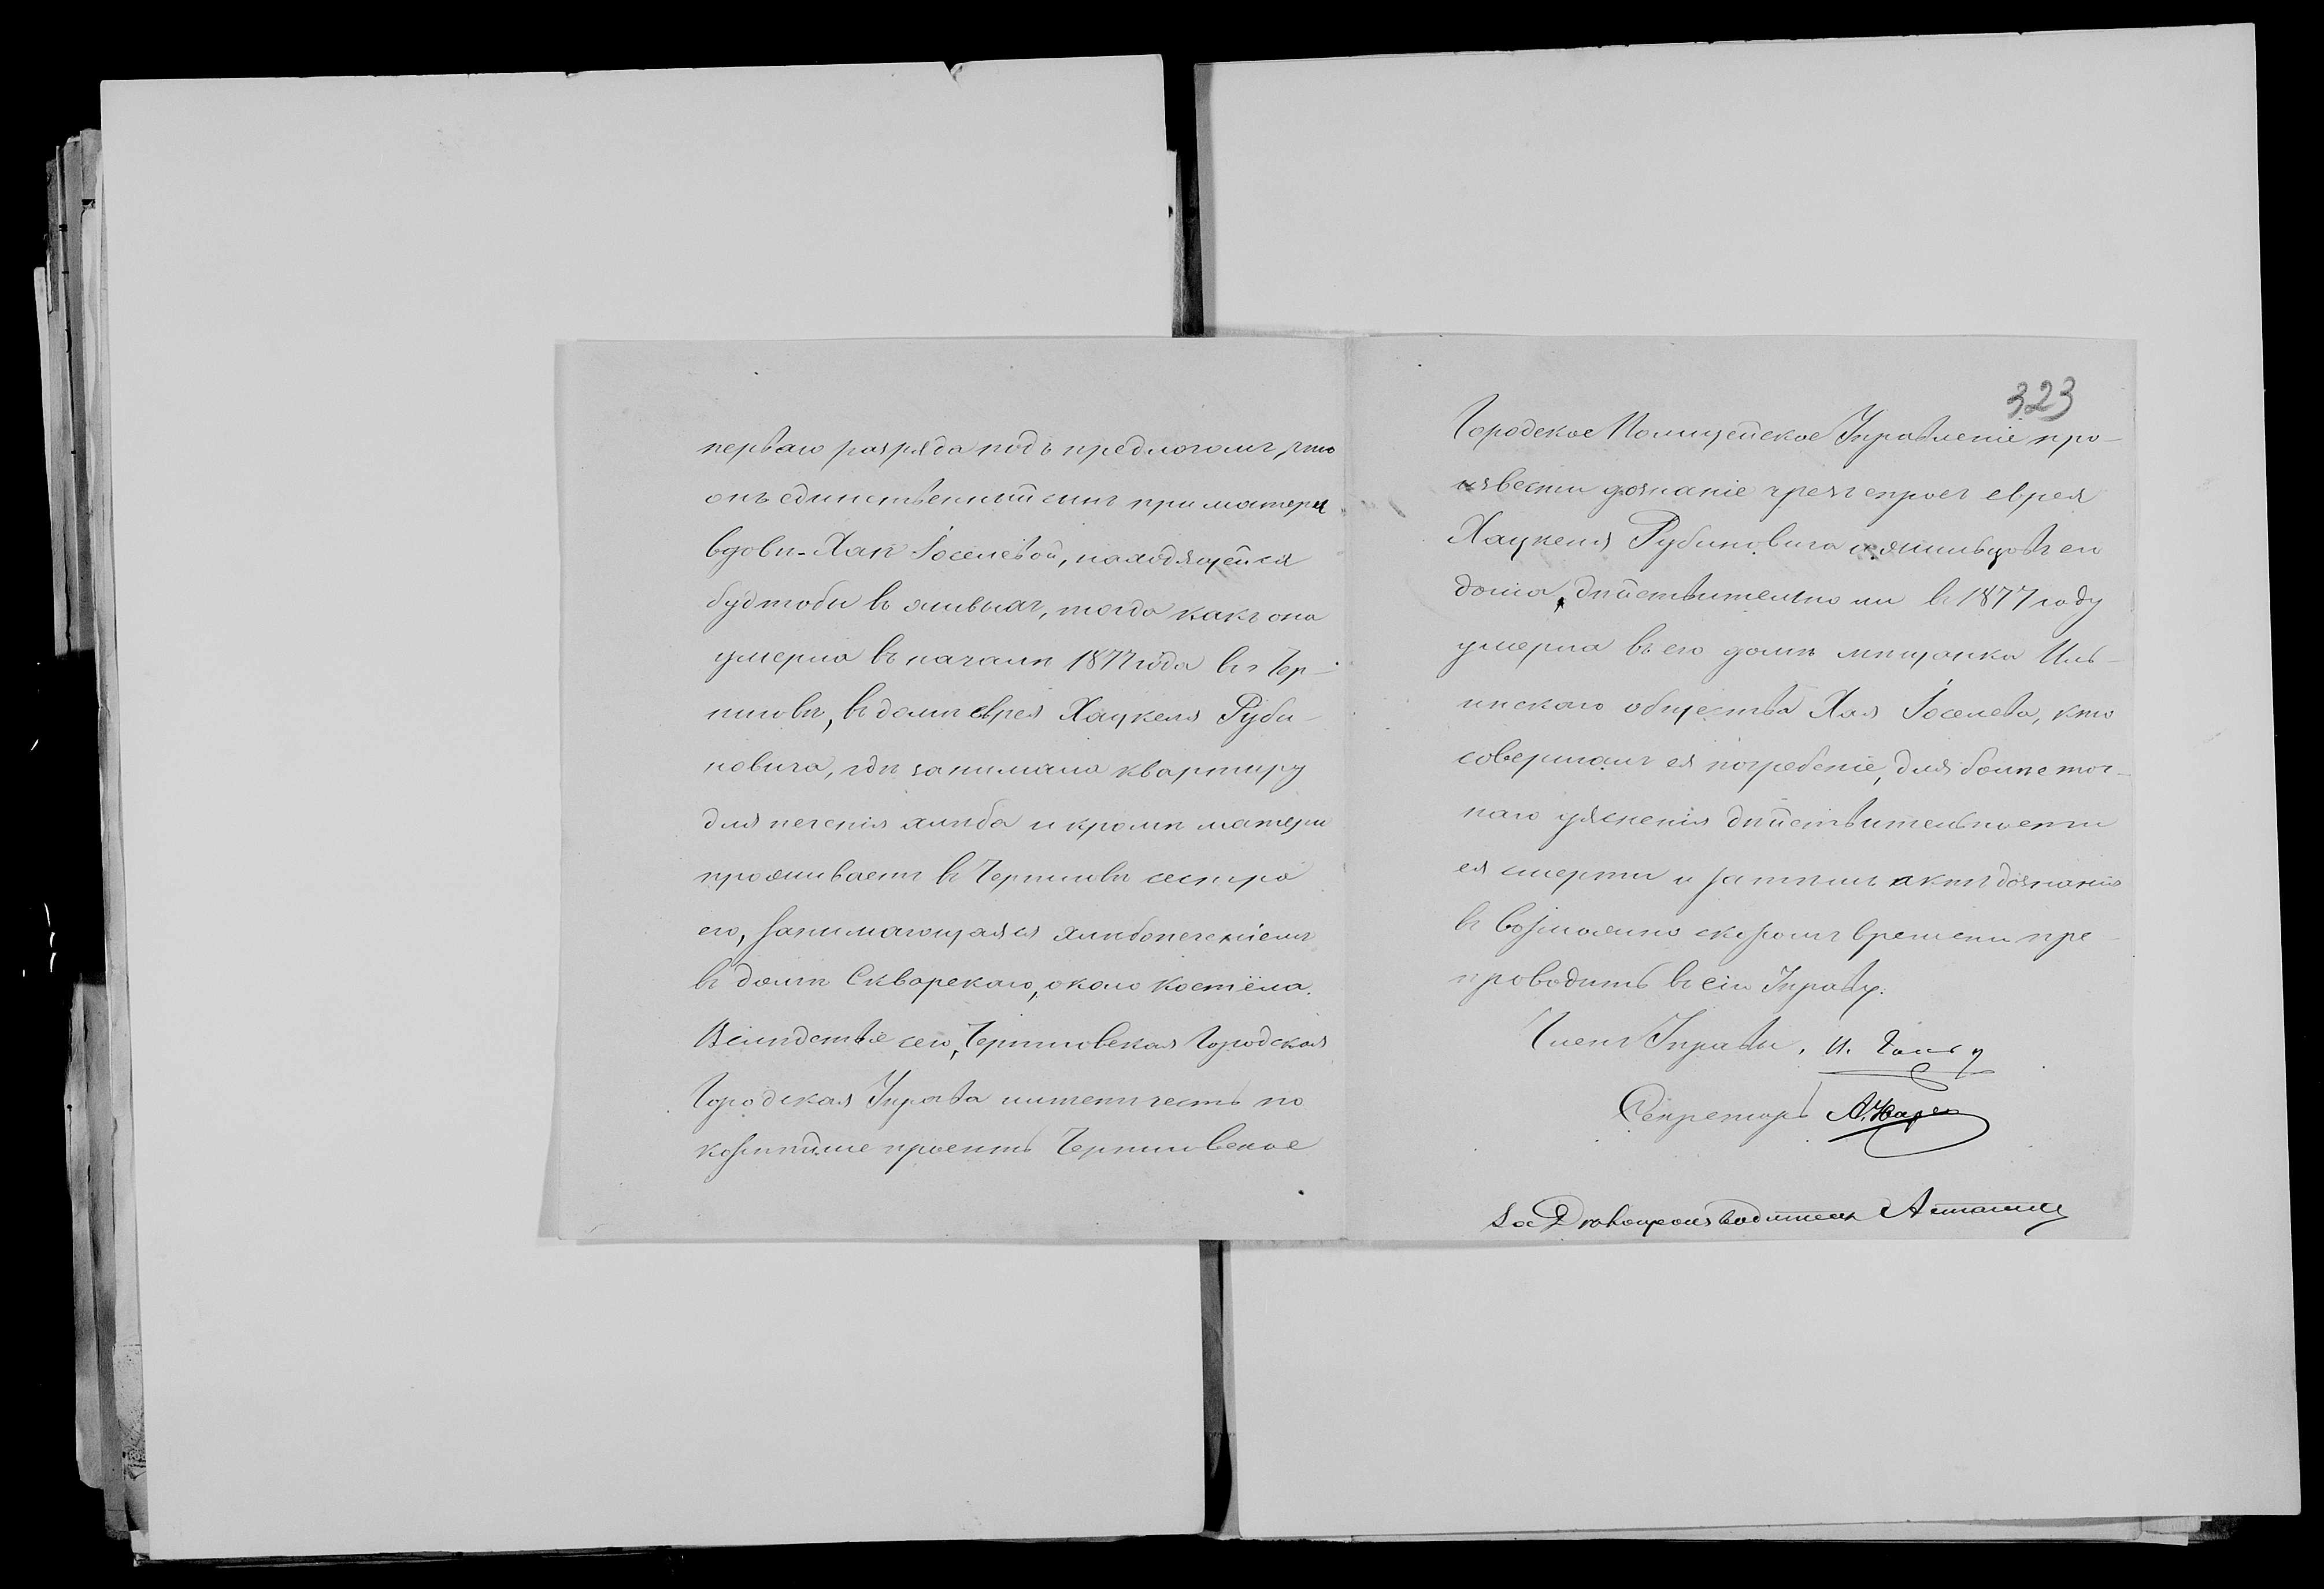 перваго разряда подъ предлогомъ, что
онъ единственный сынъ при матери
вдовѣ - Хаѣ Іоселевой, находящейся
будтобы въ живыхъ, тогда какъ она
умерла въ началѣ 1877 года въ г. Чер-
ниговѣ, въ домѣ еврея Хацкеля Руби-
новича, гдѣ занимала квартиру
для печенія хлѣба и кромѣ матери
проживаетъ въ Черниговѣ сестра
его, занимающаяся хлѣбопеченіемъ
въ домѣ Скварскаго, около костёла.
Вслѣдствіе сего, Черниговская Городская
Городская Управа имѣетъ честь по
корнѣйше просить Черниговское
323
Городское Полицейское Управленіе про-
извести дознаніе чрезъ спросъ еврея
Хацкеля Рубиновича и жильцовъ его
дома, дѣйствительно ли въ 1877 году
умерла въ его домѣ мѣщанка
общества Хая Іоселева, кто
совершалъ ея погребеніе, для болѣе точ-
наго уясненія дѣйствительности
ея смерти и затѣмъ актъ дознанія
въ возможно скоромъ времени пре-
проводить въ сію Управу.
Членъ Управы, И.
Секретарь А.
За Дѣлопроизводителя